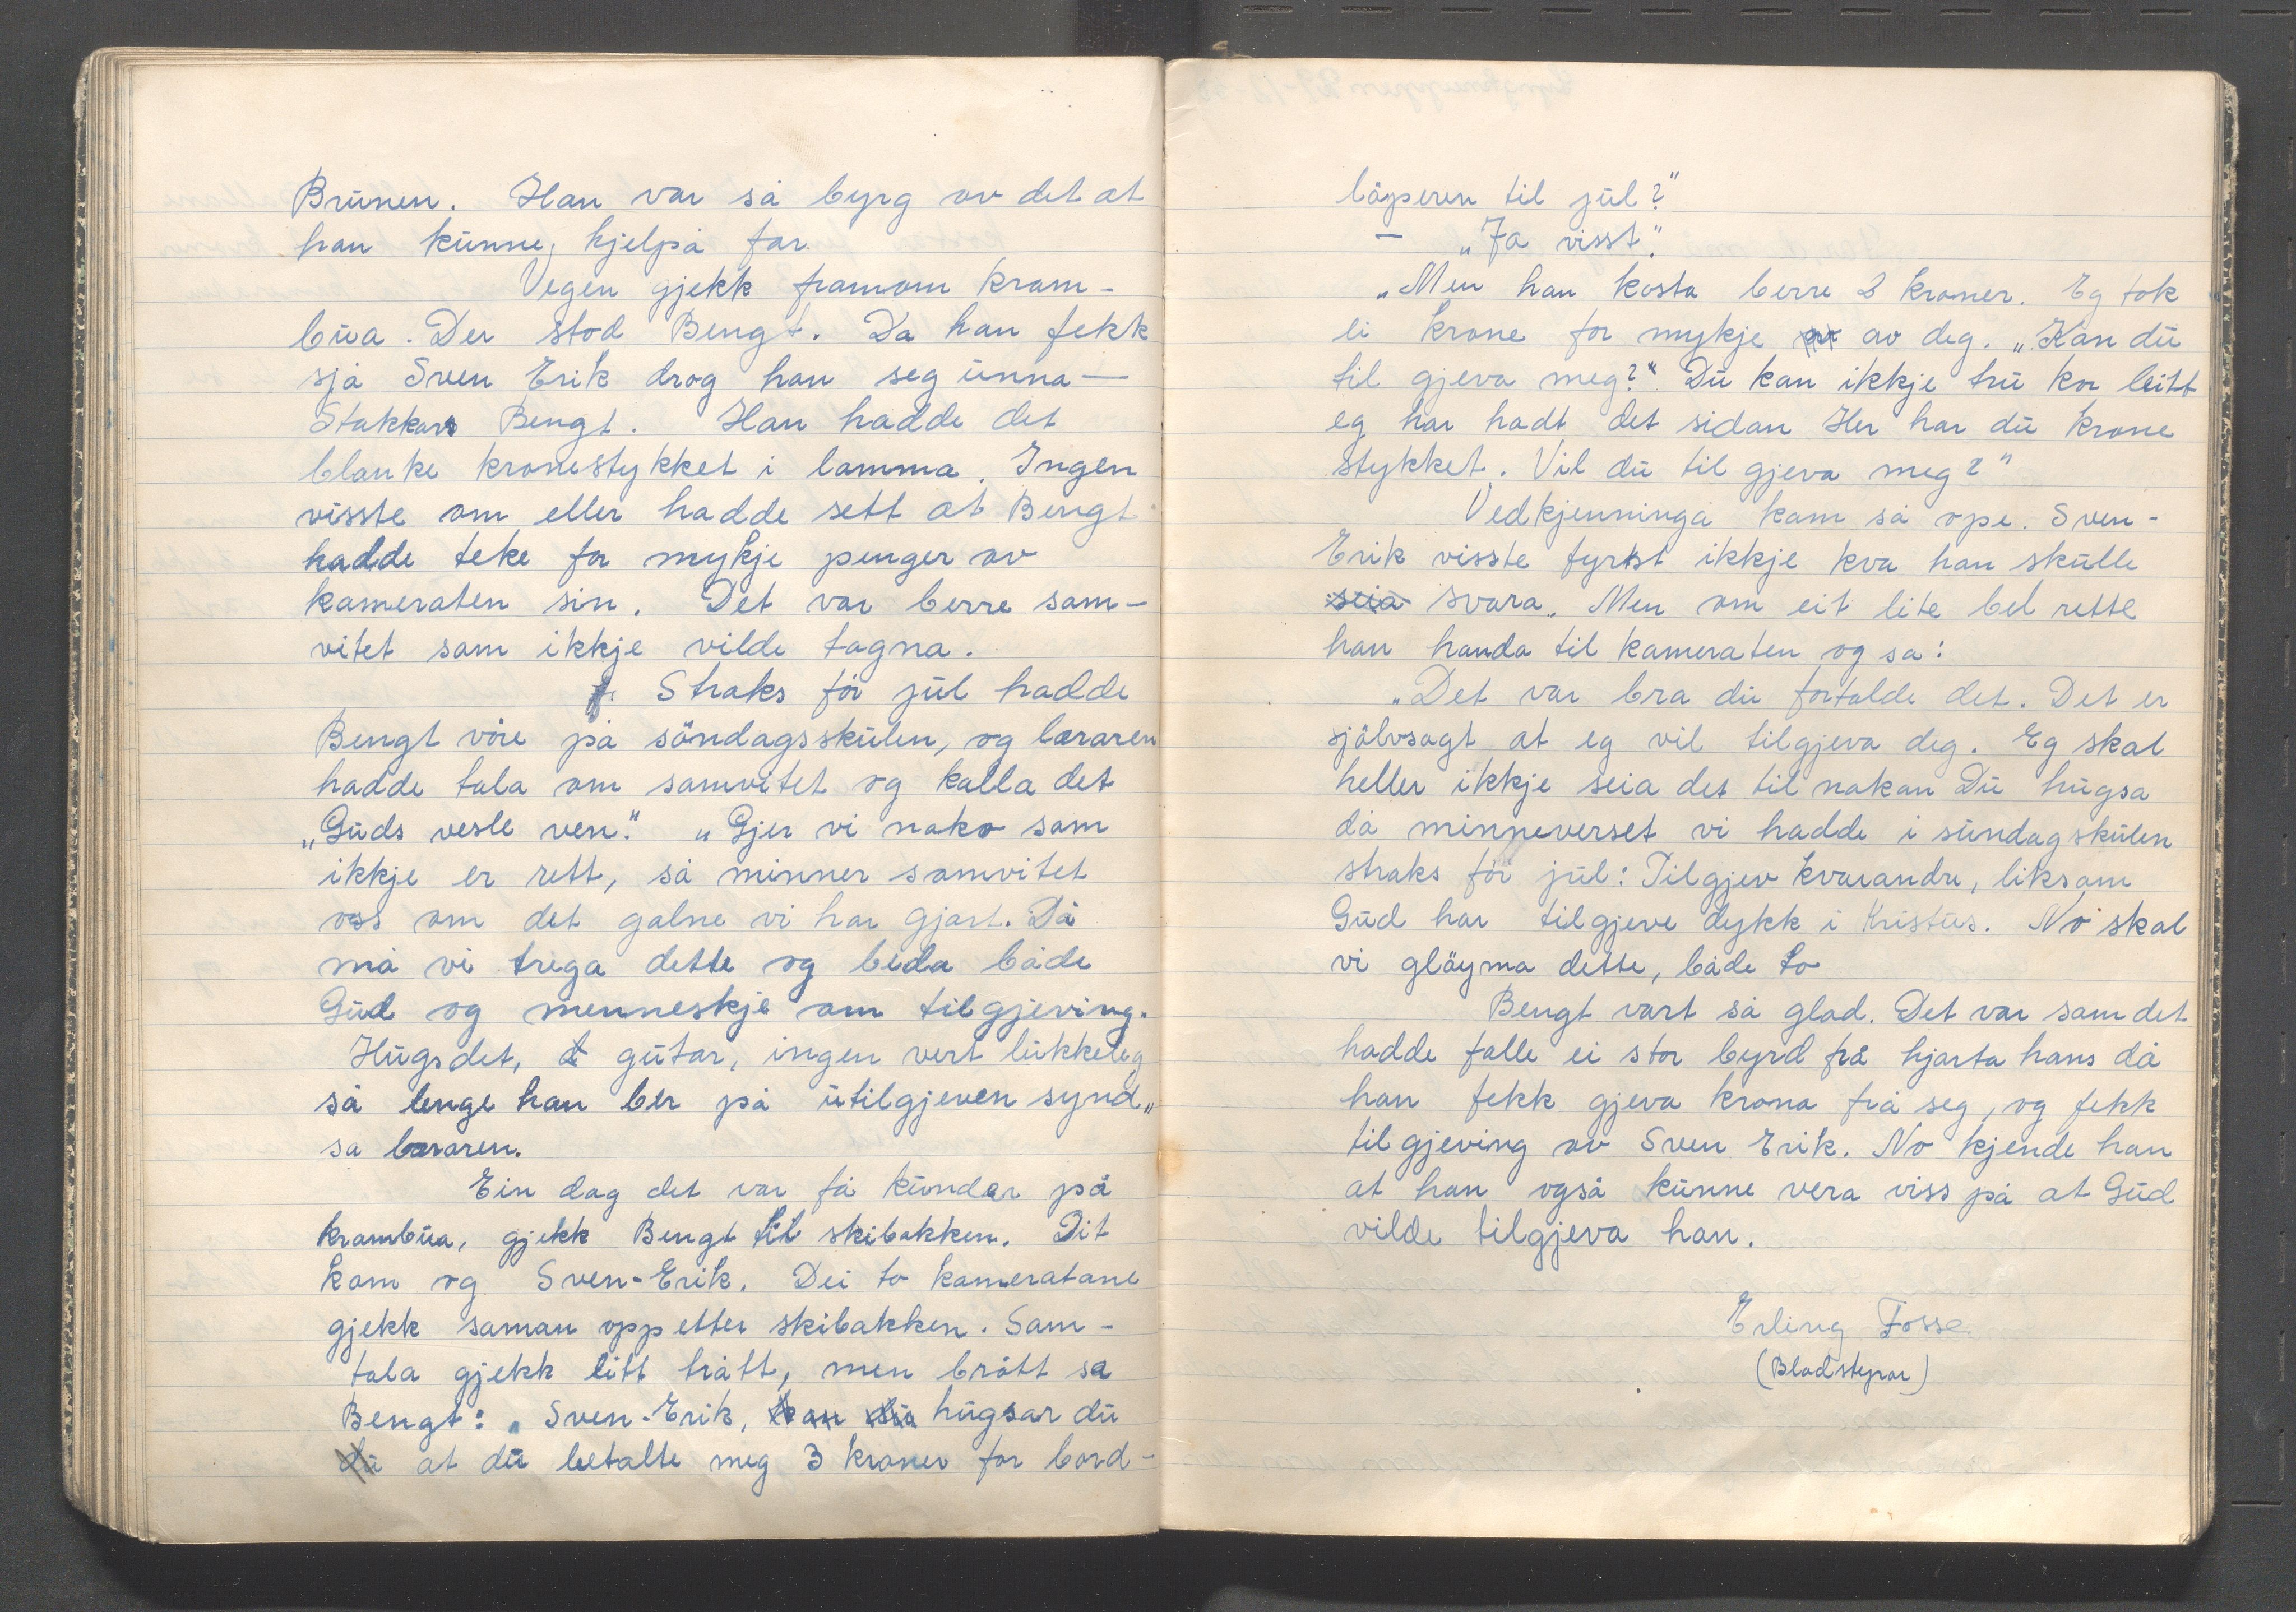 Brunen. Han var så byrg av det at
han kunne, hjelpå far.
Vegen gjekk framom kram-
bua. Der stod Bengt. Da han fekk
sjå Sven Erik drog han seg unna —
Stakkars Bengt. Han hadde det
blanke kronestykket i lamma. Ingen
visste om eller hadde sett at Bengt
hadde teke for mykje penger av
kameraten sin. Det var berre sam-
vitet som ikkje vilde tagna.
Straks för jul hadde
Bengt vore på söndagsskulen, og læraren
hadde tala om samvitet og kalla det
„Guds vesle ven." „Gjer vi noko som
ikkje er rett, så minner samvitet
oss om det galne vi har gjort. Då
må vi trega dette og beda både
Gud og menneskje om tilgjeving.
Hugs det, gutar, ingen vert lukkeleg
så lenge han ber på utilgjeven synd„
sa læraren.
Ein dag det var få kundar på
krambua, gjekk Bengt til skibakken. Dit
kom og Sven-Erik. Dei to kameratane
gjekk saman opp etter skibakken. Sam-
tala gjekk litt trått, men brått sa
Bengt: „Sven-Erik, kan du hugsar du
du at du betalte meg 3 kroner for bord-
löperen til jul?"
— „Ja visst."
„Men han kosta berre 2 kroner. Eg tok
ei krone for mykje av av deg. „Kan du
til gjeva meg?" Du kan ikkje tru kor leitt
eg har hadt det sidan Her har du krone
stykket. Vil du til gjeva meg?"
Vedkjenninga kom så ope. Sven-
Erik visste fyrst ikkje kva han skulle
seia svara. Men om eit lite bel rette
han handa til kameraten og sa:
„Det var bra du fortalde det. Det er
sjölvsagt at eg vil tilgjeva deg. Eg skal
heller ikkje seia det til nokon Du hugsa
då minneverset vi hadde i sundagskulen
straks för jul: Tilgjev kvarandre, liksom
Gud har tilgjeve dykk i Kristus. No skal
vi glöyma dette, både to
Bengt vart så glad. Det var som det
hadde falle ei stor byrd frå hjarta hans då
han fekk gjeva krona frå seg, og fekk
til gjeving av Sven Erik. No kjende han
at han også kunne vera viss på at Gud
vilde tilgjeva han.
Erling Fosse
(Bladstyrar)